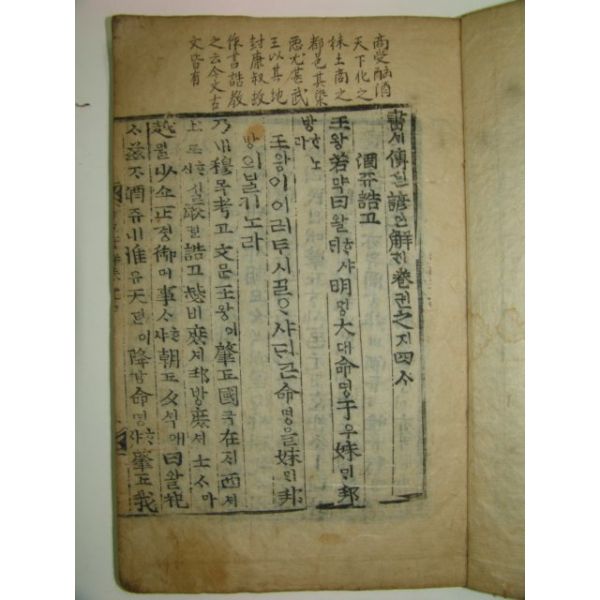 商受酗酒
天下化之
妹土商之
都邑其染
惡尤甚武
王以其地
封康叔故
作書誥教
之云今文古
文皆有
書셔傳뎐諺언解ᄒᆡ卷권之지四ᄉᆞ
酒쥬誥고
王왕若약曰왈ᄒᆞ샤ᄃᆡ明명大대命명于우妹ᄆᆡ邦
방ᄒᆞ노라
王왕이이러투시ᄀᆞᆯᄋᆞ샤ᄃᆡ큰命명을妹ᄆᆡ邦
방의ᄇᆞᆯ기노라
乃내穆목考고文문王왕이肇됴國국在ᄌᆡ西셔
土토ᄒᆞ실厥궐誥고毖비庶셔邦방庶셔士ᄉᆞ
越월少쇼正졍御어事ᄉᆞᄒᆞ샤朝됴夕셕애曰왈祀
ᄉᆞ玆ᄌᆞ酒쥬ㅣ니惟유天텬이降강命명ᄒᆞ샤肇됴我